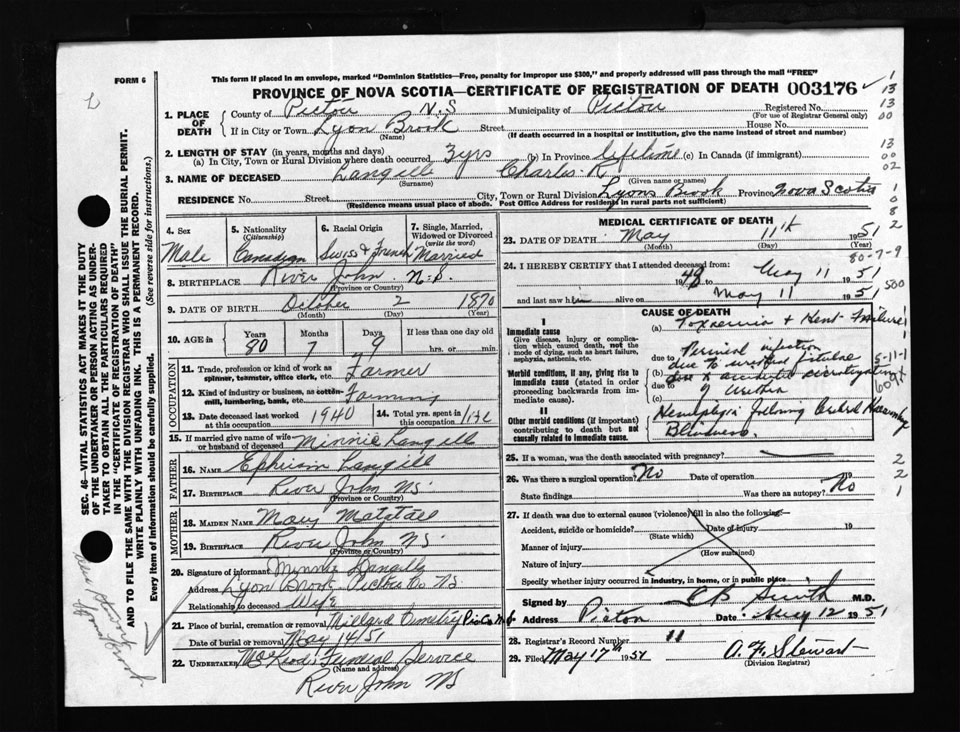 FORM 6
This form if placed in an envelope, marked "Dominion Statistics—Free, penalty for improper use $300," and properly addressed will pass through the mail "FREE"
PROVINCE OF NOVA SCOTIA—CERTIFICATE OF REGISTRATION OF DEATH 003176
1. PLACE OF DEATH
County of Pictou N.S Municipality of Pictou Registered No.
(For use of Registrar General only)
If in City or Town Lyon Brook Street House No.
(Name) (If death occurred in a hospital or institution, give the name instead of street and number)
2. LENGTH OF STAY (in years, months and days)
(a) In City, Town or Rural Division where death occurred 3 yrs (b) In Province lifetime (c) In Canada (if immigrant)
3. NAME OF DECEASED Langille Charles R
(Surname) (Given name or names)
RESIDENCE No. Street City, Town or Rural Division Lyons Brook Province Nova Scotia
(Residence means usual place of abode. Post Office Address for residents in rural parts not sufficient)
4. Sex
Male
5. Nationality
(Citizenship)
Canadian
6. Racial Origin
Swiss & French
7. Single, Married, Widowed or Divorced
(write the word)
Married
8. BIRTHPLACE River John N.S.
(Province or Country)
9. DATE OF BIRTH October 2 1870
(Month) (Day) (Year)
10. AGE in Years Months Days If less than one day old
80 7 9 hrs. or min.
OCCUPATION
11. Trade, profession or kind of work as spinner, teamster, office clerk, etc. Farmer
12. Kind of industry or business, as cotton-mill, lumbering, bank, etc. Farming
13. Date deceased last worked at this occupation 1940
14. Total yrs. spent in this occupation
15. If married give name of wife or husband of deceased Minnie Langille
FATHER
16. NAME Ephriam Langill
17. BIRTHPLACE River John NS.
(Province or Country)
MOTHER
18. MAIDEN NAME Mary Matatall
19. BIRTHPLACE River John NS.
(Province or Country)
20. Signature of informant Minnie Langille
Address Lyon Brook Pictou Co NS.
Relationship to deceased Wife
21. Place of burial, cremation or removal Millard Cemetry Pictou
Date of burial or removal May 14/51
22. UNDERTAKER McLeods Funeral Service
(Name and address)
River John NS
MEDICAL CERTIFICATE OF DEATH
23. DATE OF DEATH May 11th 1951
(Month) (Day) (Year)
80-7-9
24. I HEREBY CERTIFY that I attended deceased from:
1948 to May 11 1951
and last saw him alive on May 11 1951
CAUSE OF DEATH
I
Immediate cause
Give disease, injury or complication which caused death, not the mode of dying, such as heart failure, asphyxia, asthenia, etc.
(a) Toxaemia & Heart Failure
Morbid conditions, if any, giving rise to immediate cause (stated in order proceeding backwards from immediate cause).
due to Perineal infection
(b) due to urethral fistulae
due to
(c) of Urethra
II
Other morbid conditions (if important) contributing to death but not causally related to immediate cause.
Hemiplegia following Cerebral
Blindness.
25. If a woman, was the death associated with pregnancy?
26. Was there a surgical operation? No Date of operation 19
State findings Was there an autopsy? No
27. If death was due to external causes (violence) fill in also the following:—
Accident, suicide or homicide? Date of injury 19
(State which)
Manner of injury
(How sustained)
Nature of injury
Specify whether injury occurred in industry, in home, or in public place
Signed by C B Smith M.D.
Address Pictou Date May 12 1951
28. Registrar's Record Number 11
29. Filed May 17th 1951 A. F. Stewart
(Division Registrar)
SEC. 46—VITAL STATISTICS ACT MAKES IT THE DUTY
OF THE UNDERTAKER OR PERSON ACTING AS UNDERTAKER TO OBTAIN ALL THE PARTICULARS REQUIRED
IN THE "CERTIFICATE OF REGISTRATION OF DEATH"
AND TO FILE THE SAME WITH THE DIVISION REGISTRAR WHO SHALL ISSUE THE BURIAL PERMIT.
WRITE PLAINLY WITH UNFADING INK. THIS IS A PERMANENT RECORD.
Every item of information should be carefully supplied. (See reverse side for instructions.)
1
13
13
00
13
00
02
1
0
8
2
500
1
5-11-1
609X
2
2
1